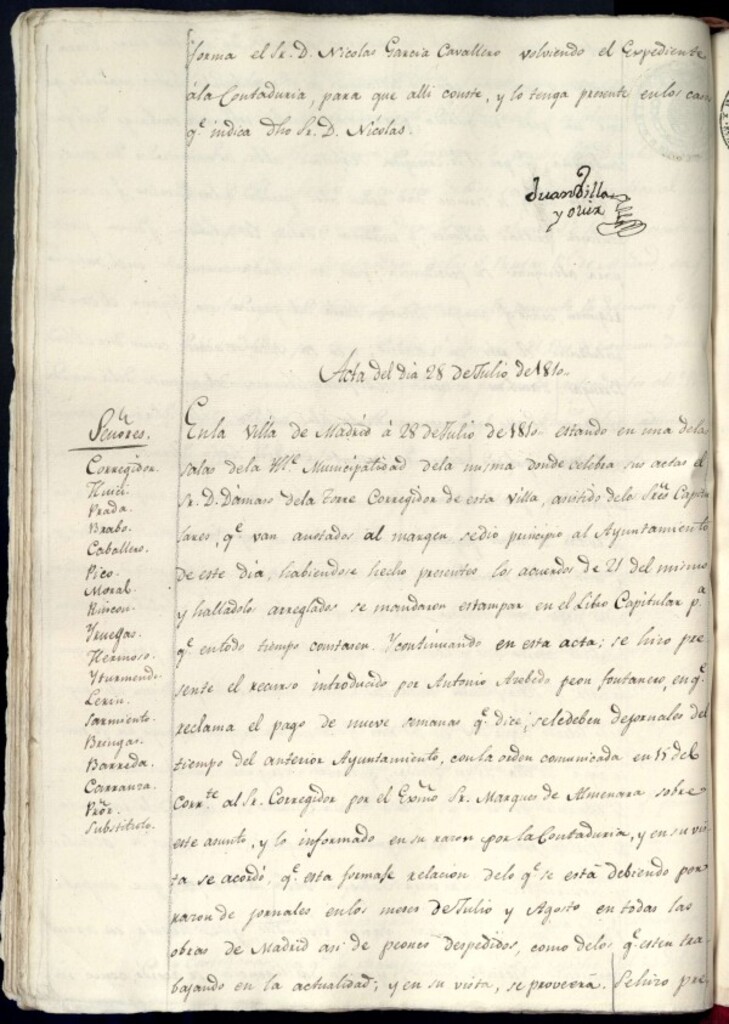 forma el Sr. D. Nicolas Garcia Cavallero volviendo el Expediente
ála Contaduria, para que alli conste, y lo tenga presente en los casos
q.e indica dho Sr. D. Nicolas.
Juan Villa
y Olier
Acta del dia 28 de Julio de 1810.
Señores.
Corregidor.
Prada.
Brabo.
Caballero.
Pico.
Moral.
Rincon.
Yruegas.
Hermoso.
Yturmendi.
Lerin.
Sarmiento.
Bringas.
Barreda.
Carranza.
Pror.
Substituto.
En la Villa de Madrid á 28 de Julio de 1810 estando en una de las
salas dela Mu.e Municipalidad dela misma donde celebra sus actas el
Sr. D. Dámaso dela Torre Corregidor de esta villa, asistido delos Sres Capitu
lares, q.e van anotados al margen se dio principio al Ayuntamiento
de este dia, habiendose hecho presentes los acuerdos de 21 del mismo
y hallados arreglados se mandaron estampar en el Libro Capitular p.a
q.e en todo tiempo constasen. Y continuando en esta acta; se hizo pre
sente el recurso introducido por Antonio Azebedo peon fontanero, en q.e
reclama el pago de nueve semanas q.e dice, se le deben de jornales del
tiempo del anterior Ayuntamiento, con la orden comunicada en 15 del
corr.te al Sr. Corregidor por el Exmo Sr. Marques de Almenara sobre
este asunto, y lo informado en su razon por la Contaduria, y en su vis
ta se acordó, q.e esta formase relacion delo q.e se está debiendo por
razon de jornales en los meses de Julio y Agosto en todas las
obras de Madrid asi de peones despedidos, como delos q.e esten tra
bajando en la actualidad; y en su vista, se proveerá. Se hizo pre